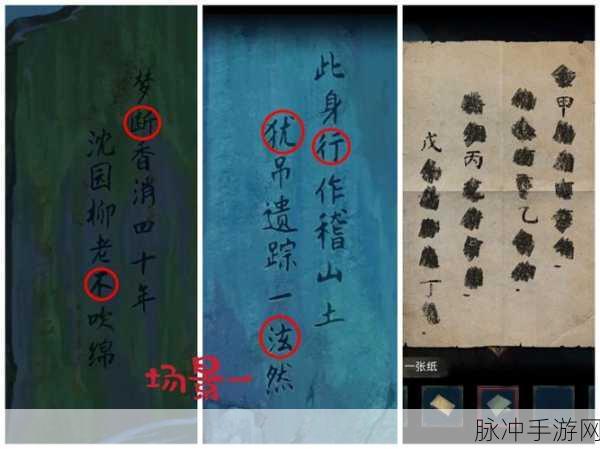 梦断香消四十年
沈园柳老不吹绵
此身行作稽山土
犹吊遗踪一泫然
甲
乙
丙
戊 丁
场景一
一张纸
脉冲手游网